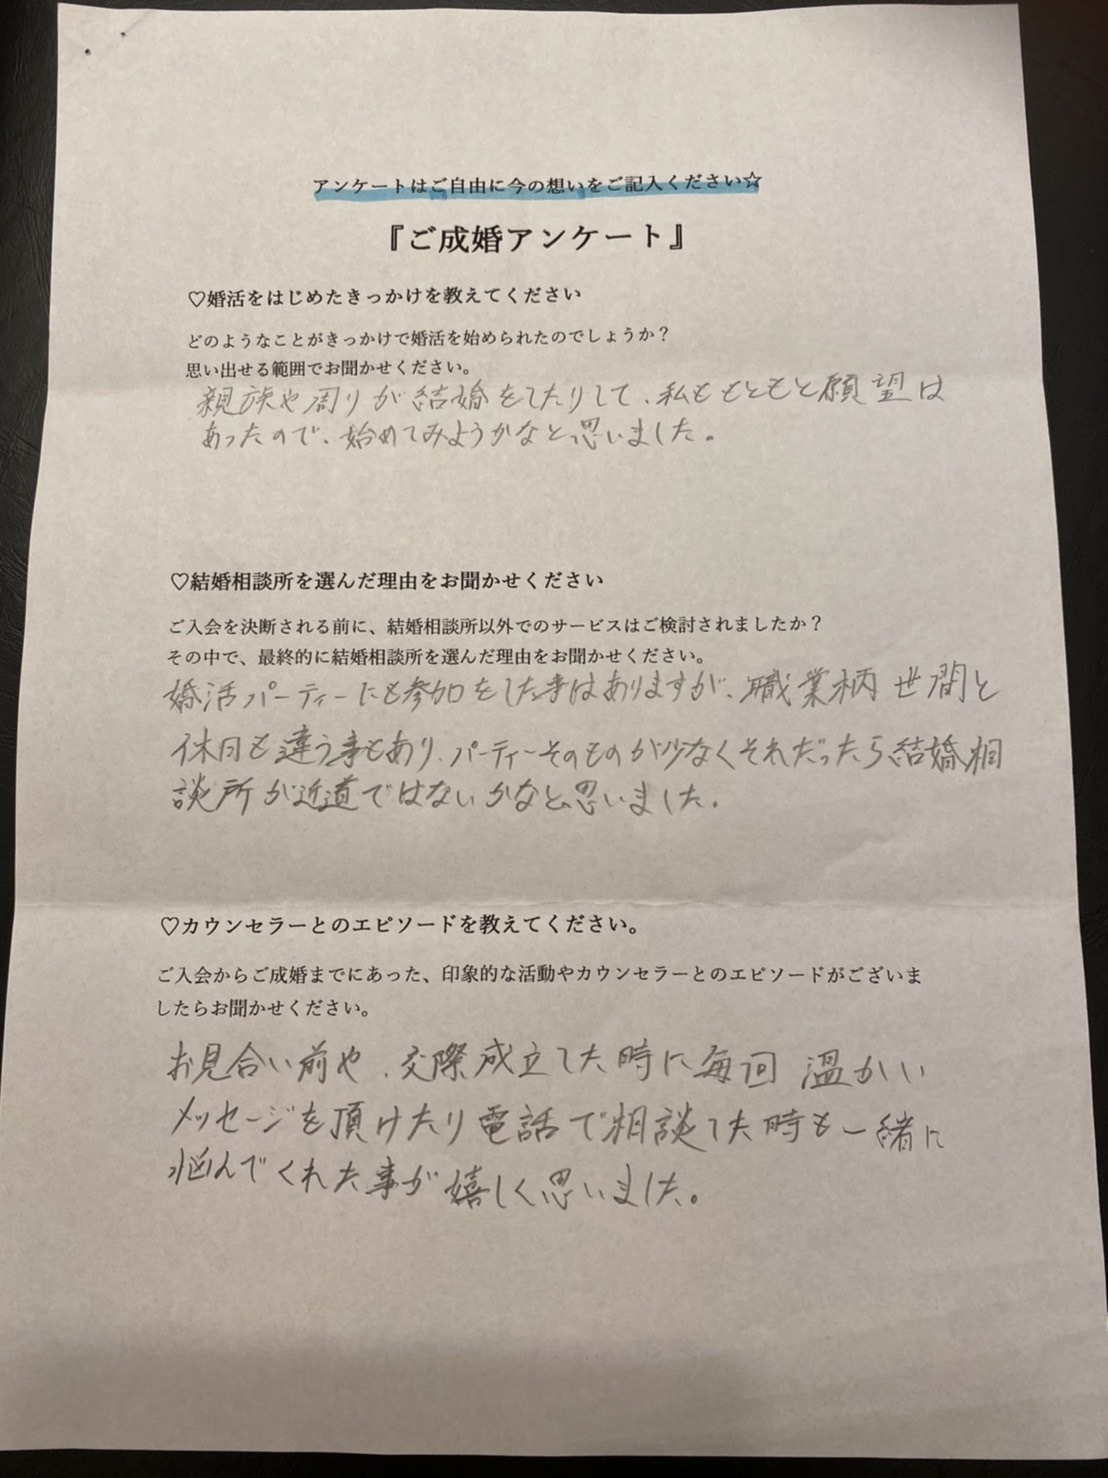 アンケートはご自由に今の想いをご記入ください☆
『ご成婚アンケート』
♡婚活をはじめたきっかけを教えてください
どのようなことがきっかけで婚活を始められたのでしょうか？
思い出せる範囲でお聞かせください。
親族や周りが結婚をしたりして、私ももともと願望は
あったので、始めてみようかなと思いました。
♡結婚相談所を選んだ理由をお聞かせください
ご入会を決断される前に、結婚相談所以外でのサービスはご検討されましたか？
その中で、最終的に結婚相談所を選んだ理由をお聞かせください。
婚活パーティーにも参加をした事はありますが、職業柄世間と
休日も違う事もあり、パーティーそのものが少なくそれだったら結婚相
談所が近道ではないかなと思いました。
♡カウンセラーとのエピソードを教えてください。
ご入会からご成婚までにあった、印象的な活動やカウンセラーとのエピソードがございま
したらお聞かせください。
お見合い前や、交際成立した時に毎回 温かい
メッセージを頂けたり電話で相談した時も一緒に
悩んでくれた事が嬉しく思いました。